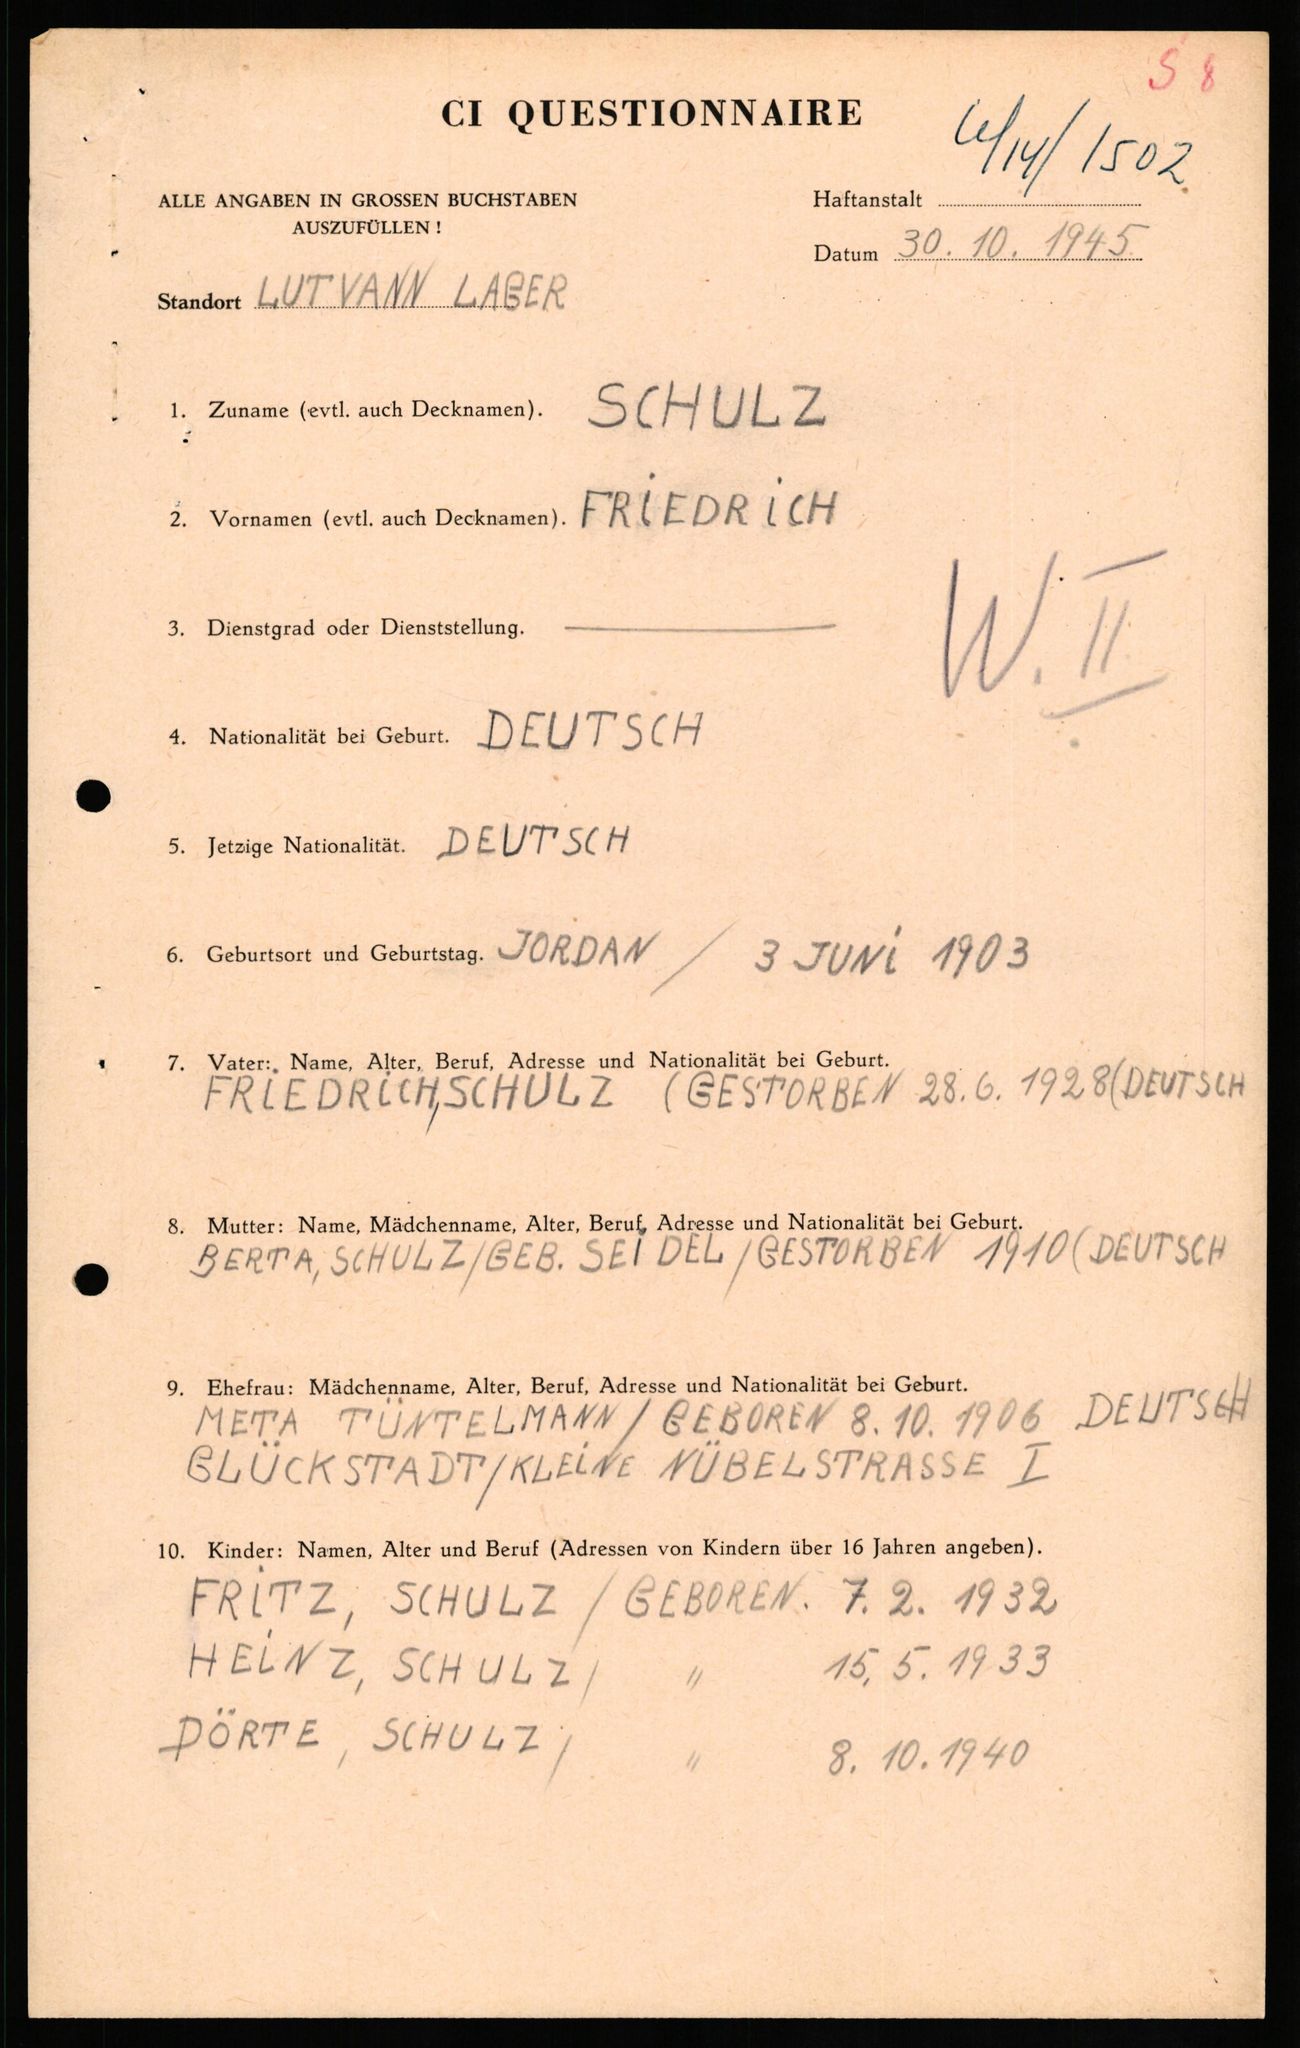 S 8
CI QUESTIONNAIRE
/14/1502
ALLE ANGABEN IN GROSSEN BUCHSTABEN
AUSZUFÜLLEN!
Haftanstalt
Datum 30. 10. 1945
Standort LUTVANN LAGER
1. Zuname (evtl. auch Decknamen). SCHULZ
2. Vornamen (evtl. auch Decknamen). FRIEDRICH
3. Dienstgrad oder Dienststellung. —
W. II
4. Nationalität bei Geburt. DEUTSCH
5. Jetzige Nationalität. DEUTSCH
6. Geburtsort und Geburtstag. JORDAN / 3 JUNI 1903
7. Vater: Name, Alter, Beruf, Adresse und Nationalität bei Geburt.
FRIEDRICH, SCHULZ (GESTORBEN 28. 6. 1928 (DEUTSCH
8. Mutter: Name, Mädchenname, Alter, Beruf, Adresse und Nationalität bei Geburt.
BERTA, SCHULZ / GEB. SEIDEL / GESTORBEN 1910 (DEUTSCH
9. Ehefrau: Mädchenname, Alter, Beruf, Adresse und Nationalität bei Geburt.
META TÜNTELMANN / GEBOREN 8. 10. 1906 DEUTSCH
GLÜCKSTADT / KLEINE NÜBELSTRASSE I
10. Kinder: Namen, Alter und Beruf (Adressen von Kindern über 16 Jahren angeben).
FRITZ, SCHULZ / GEBOREN. 7. 2. 1932
HEINZ, SCHULZ / " 15. 5. 1933
DÖRTE, SCHULZ / " 8. 10. 1940